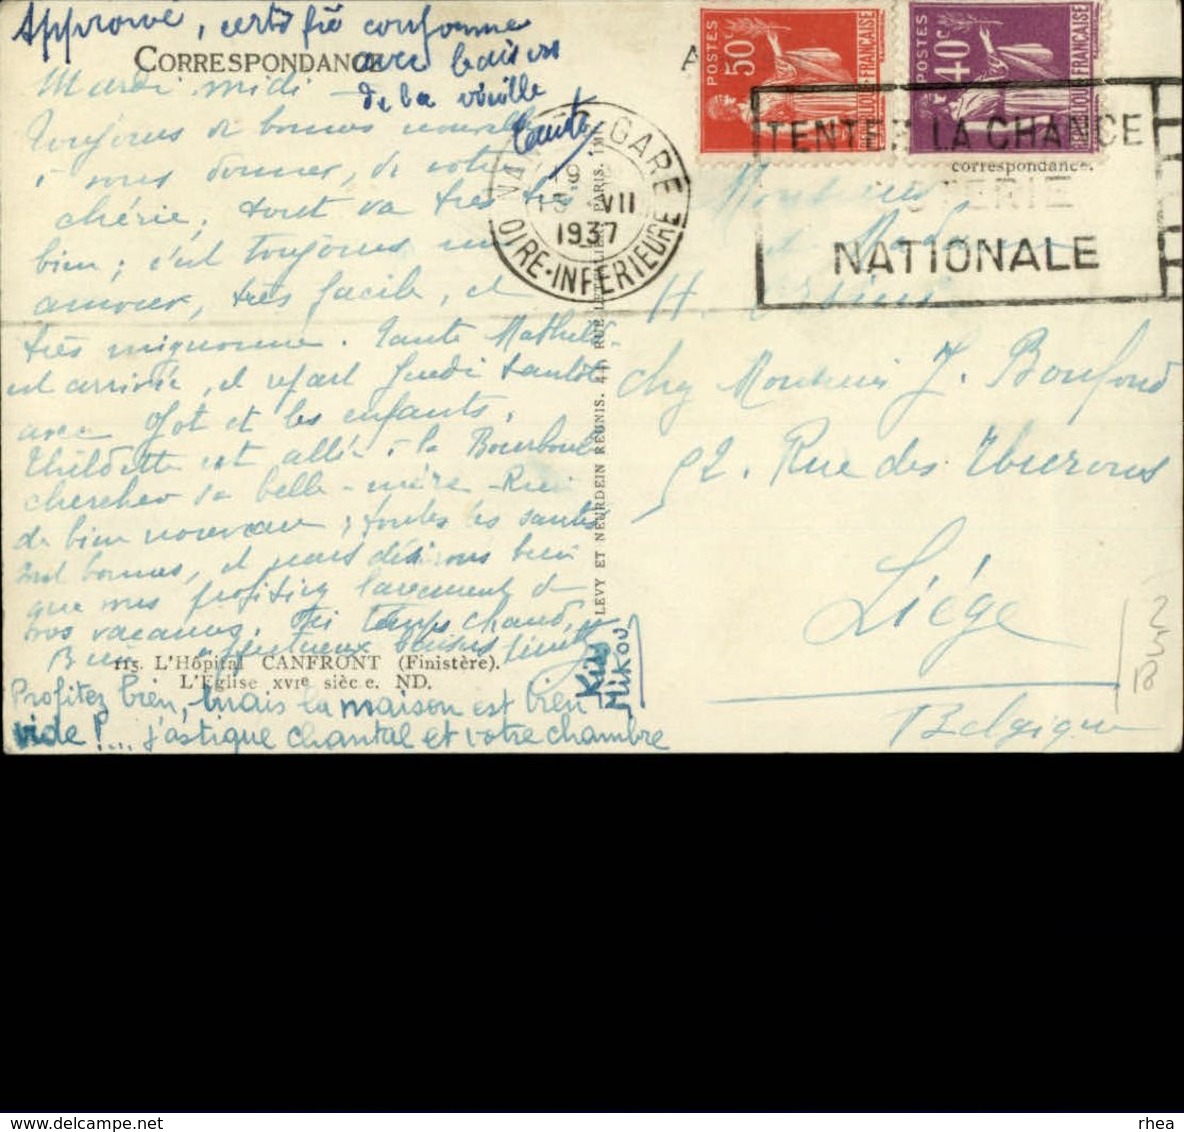 Approuvé, certifié conforme
avec baisers
de la vieille
tante
CORRESPONDANCE
Mardi midi -
Toujours de bonnes nouvelles
à vous donner, de votre
chérie; tout va très très
bien; c'est toujours un
amour, très facile, et
très mignonne. Tante Mathilde
est arrivée, et repart Jeudi
avec et les enfants.
Thildette est allée à la Bourboule
chercher sa belle-mère - Rien
de bien nouveau; toutes les santés
sont bonnes, et nous désirons bien
que vous profitiez largement de
vos vacances. Ici temps chaud,
Bien affectueux baisers
115. L'Hôpital CANFRONT (Finistère).
L'Eglise XVIe siècle. ND.
Profitez bien, mais la maison est bien
vide !... j'astique chantal et votre chambre
Kiki
Mikou
LEVY ET NEURDEIN REUNIS, 44, RUE LETELLIER, PARIS. IMP.
GARE
19
13 VII
1937
LOIRE-INFERIEURE
POSTES
50c
REPUBLIQUE FRANÇAISE
POSTES
40c
REPUBLIQUE FRANÇAISE
TENTEZ LA CHANCE
LOTERIE
NATIONALE
correspondance.
Monsieur
et Madame
H.
chez Monsieur J. Boufond
52. Rue des Eburons
Liége
Belgique
25
18
delcampe.net
rhea